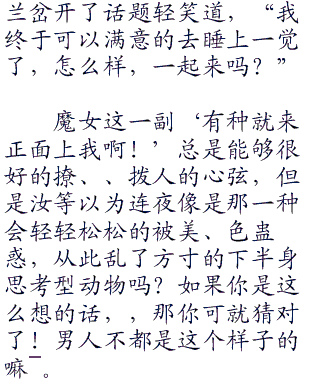 兰岔开了话题轻笑道，“我
终于可以满意的去睡上一觉
了，怎么样，一起来吗？”
魔女这一副‘有种就来
正面上我啊！’总是能够很
好的撩、、拨人的心弦，但
是汝等以为连夜像是那一种
会轻轻松松的被美、色蛊
惑，从此乱了方寸的下半身
思考型动物吗？如果你是这
么想的话，，那你可就猜对
了！男人不都是这个样子的
嘛¯。